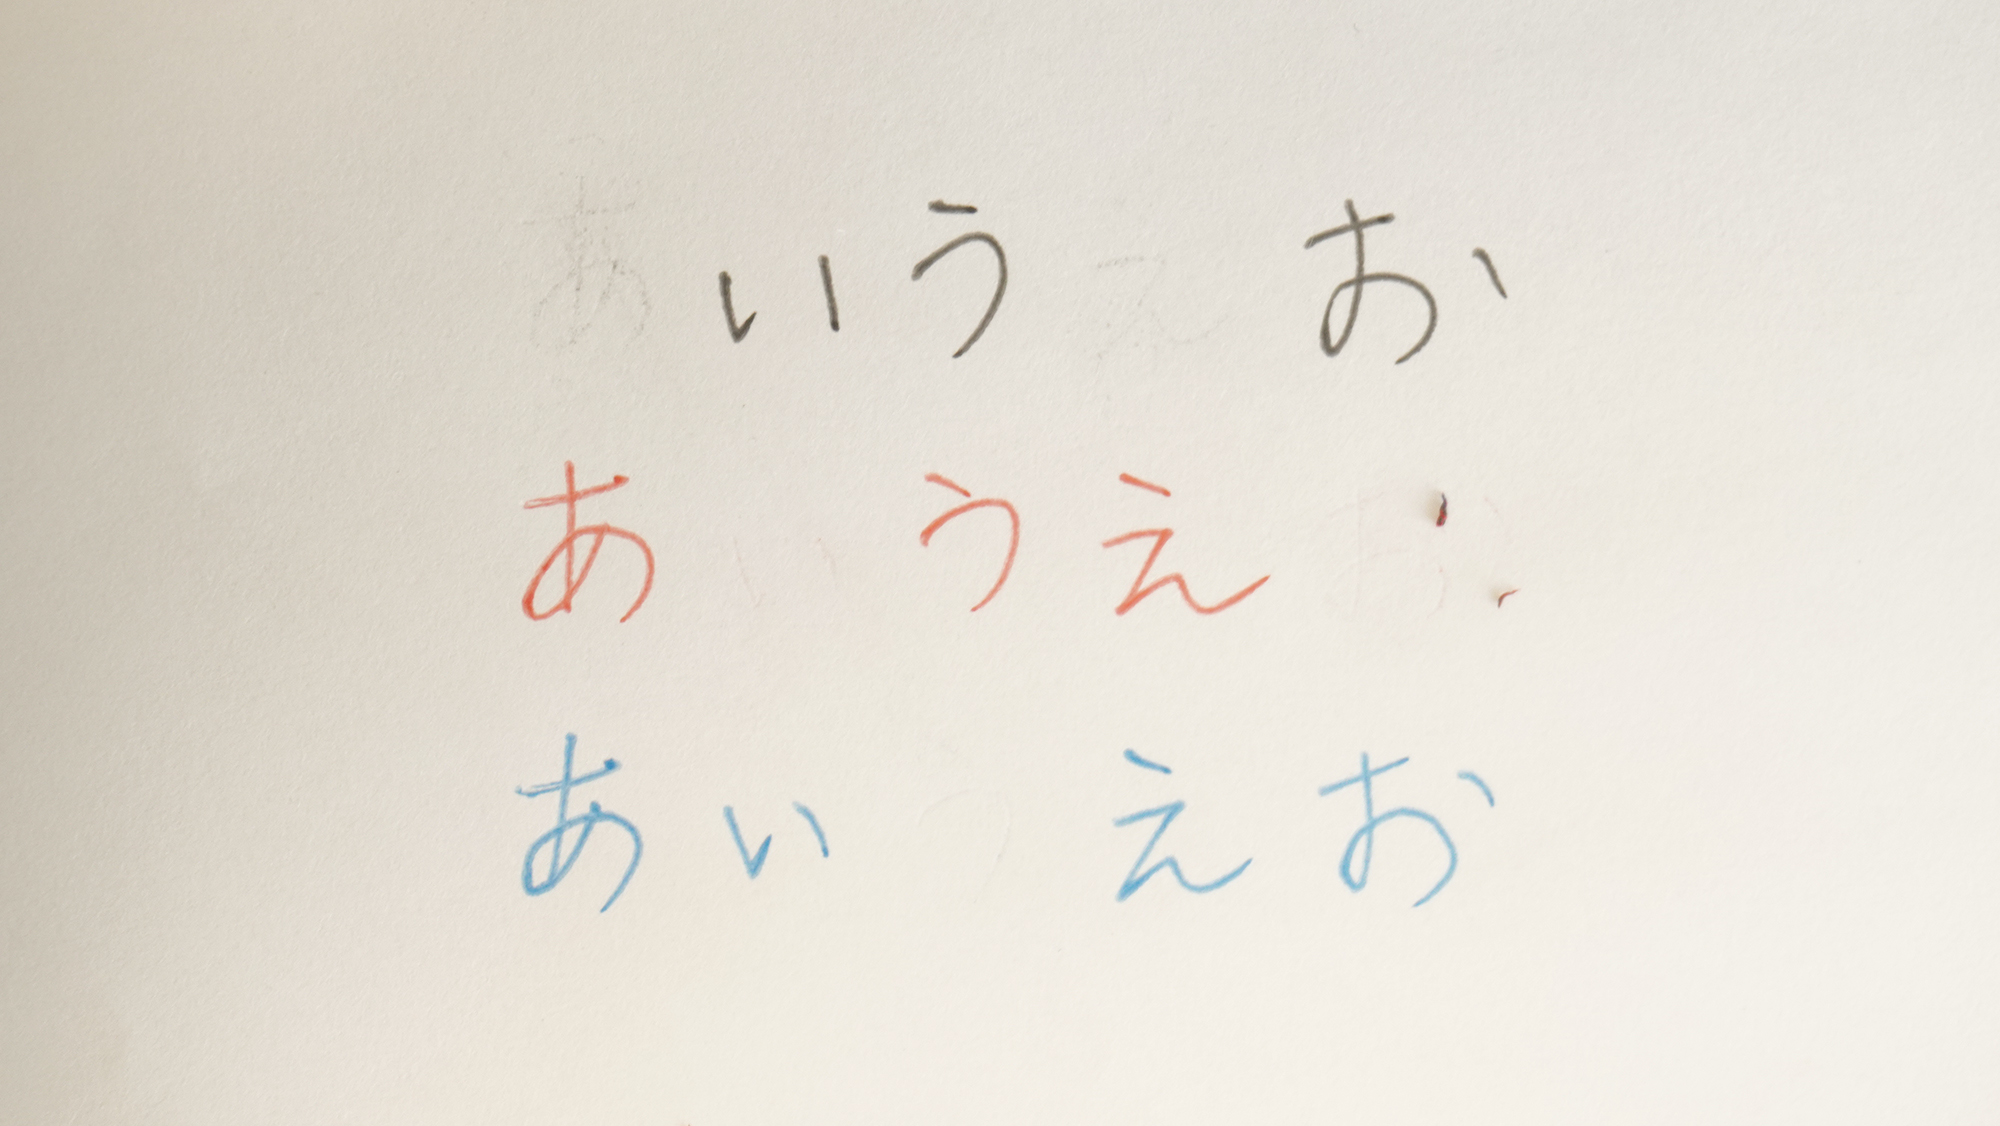 あいうえお
あいうえお
あいえお